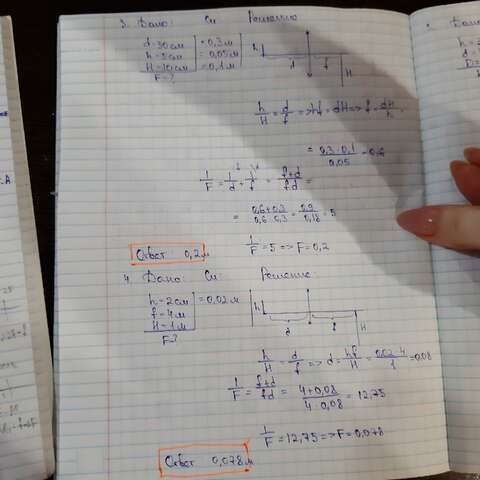 3. Дано: Си Решение
d-30см = 0,3м
h-5см = 0,05м
H-10см = 0,1м
F-?
h d f H
h/H = d/f => hf = dH => f = dH/h
= 0,3·0,1/0,05 = 0,6
1/F = 1/d + 1/f = f+d/fd =
= 0,6+0,3/0,6·0,3 = 0,9/0,18 = 5
1/F = 5 => F = 0,2
Ответ: 0,2м
4. Дано: Си Решение:
h-2см = 0,02м
f-4м
H-1м
F-?
h d f H
h/H = d/f => d = hf/H = 0,02·4/1 = 0,08
1/F = f+d/fd = 4+0,08/4·0,08 = 12,75
1/F = 12,75 => F = 0,078
Ответ 0,078м